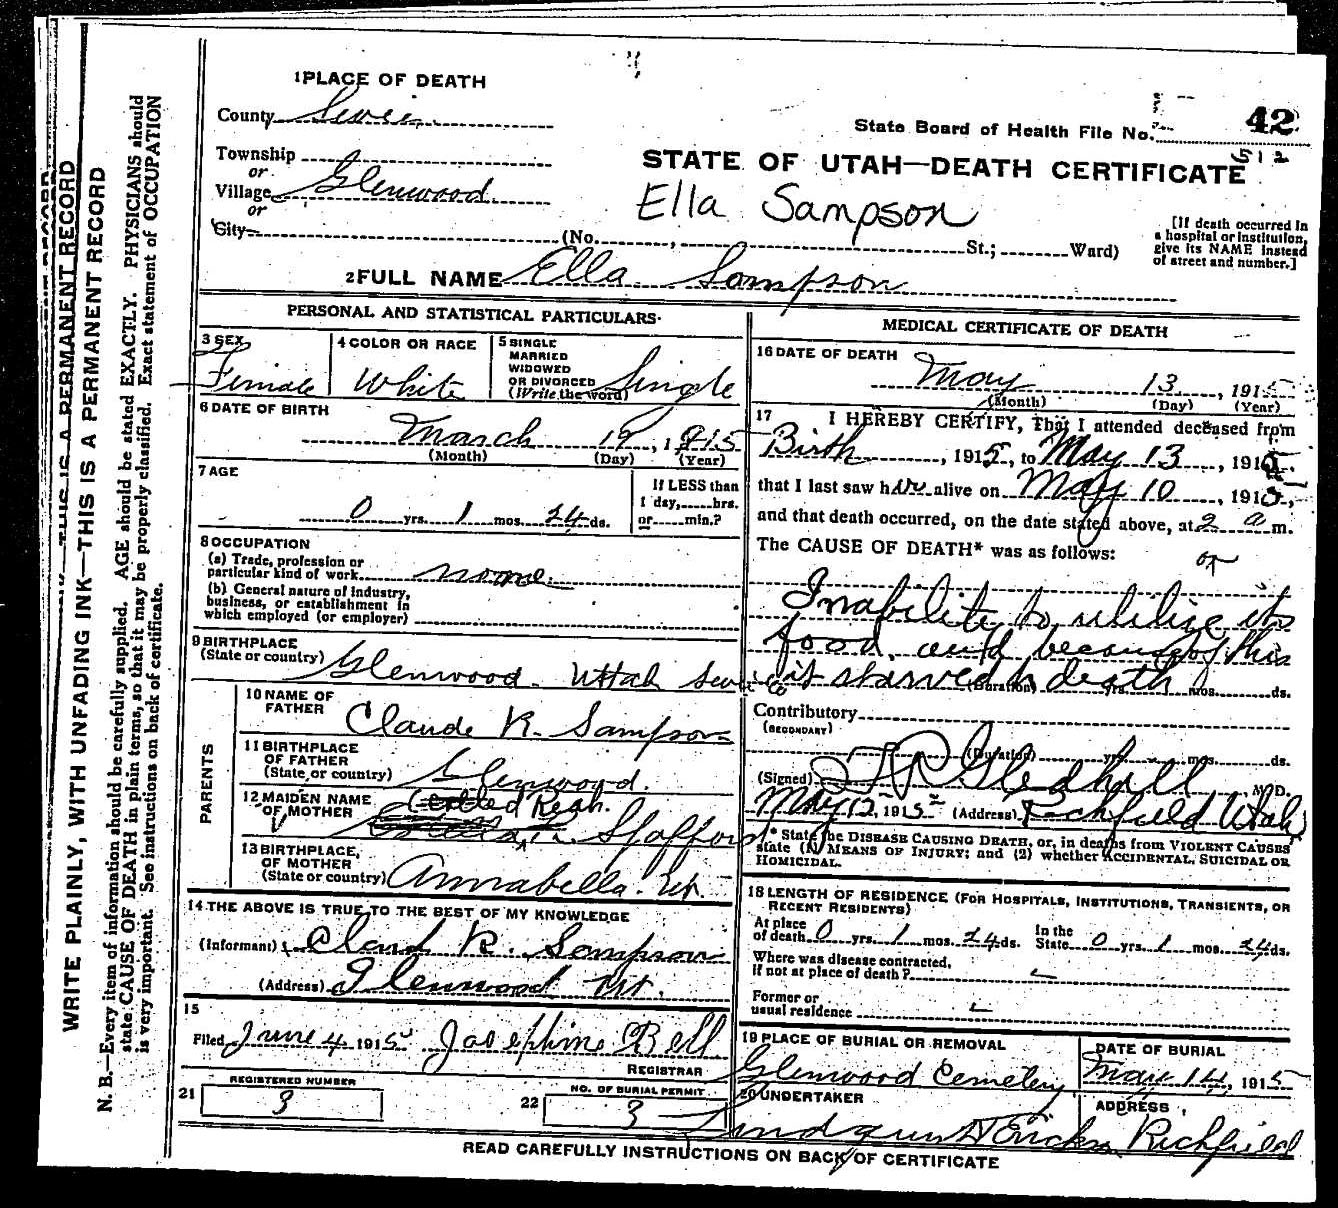 1 PLACE OF DEATH
County Sevier
State Board of Health File No. 42
512
Township
or
Village Glenwood
or
City
STATE OF UTAH—DEATH CERTIFICATE
Ella Sampson
(No. , St.; Ward)
[If death occurred in a hospital or institution, give its NAME instead of street and number.]
2 FULL NAME Ella Sampson
PERSONAL AND STATISTICAL PARTICULARS
3 SEX Female
4 COLOR OR RACE White
5 SINGLE MARRIED WIDOWED OR DIVORCED (Write the word) Single
6 DATE OF BIRTH
March 19, 1915
(Month) (Day) (Year)
7 AGE
0 yrs. 1 mos. 24 ds.
If LESS than 1 day, hrs. or min.?
8 OCCUPATION
(a) Trade, profession or particular kind of work none.
(b) General nature of industry, business, or establishment in which employed (or employer)
9 BIRTHPLACE
(State or country) Glenwood. Uttah Sevier Co
PARENTS
10 NAME OF FATHER Claude R. Sampson
11 BIRTHPLACE OF FATHER (State or country) Glenwood.
12 MAIDEN NAME OF MOTHER Stafford
13 BIRTHPLACE OF MOTHER (State or country) Annabella. Ut.
14 THE ABOVE IS TRUE TO THE BEST OF MY KNOWLEDGE
(Informant) Claud R. Sampson
(Address) Glenwood Ut.
15
Filed June 4 1915 Josephine Bell
REGISTRAR
21 REGISTERED NUMBER 3
22 NO. OF BURIAL PERMIT 3
MEDICAL CERTIFICATE OF DEATH
16 DATE OF DEATH
May 13, 1915
(Month) (Day) (Year)
17 I HEREBY CERTIFY, That I attended deceased from
Birth, 1915, to May 13, 1915.
that I last saw her alive on May 10, 1915,
and that death occurred, on the date stated above, at 2 a m.
The CAUSE OF DEATH* was as follows:
or
Inability to utilize its
food, and because of this
it starved to death
(Duration) yrs. mos. ds.
Contributory
(SECONDARY)
(Duration) yrs. mos. ds.
(Signed) Gledhill M.D.
May 12, 1915 (Address) Richfield Utah
* State the DISEASE CAUSING DEATH, or, in deaths from VIOLENT CAUSES state (1) MEANS OF INJURY; and (2) whether ACCIDENTAL, SUICIDAL OR HOMICIDAL.
18 LENGTH OF RESIDENCE (FOR HOSPITALS, INSTITUTIONS, TRANSIENTS, OR RECENT RESIDENTS)
At place of death 0 yrs. 1 mos. 24 ds. In the State 0 yrs. 1 mos. 24 ds.
Where was disease contracted, if not at place of death?
Former or usual residence
19 PLACE OF BURIAL OR REMOVAL
Glenwood Cemetery
DATE OF BURIAL
May 14, 1915
20 UNDERTAKER
ADDRESS
Richfield
READ CAREFULLY INSTRUCTIONS ON BACK OF CERTIFICATE
WRITE PLAINLY, WITH UNFADING INK—THIS IS A PERMANENT RECORD
N. B.—Every item of information should be carefully supplied. AGE should be stated EXACTLY. PHYSICIANS should
state CAUSE OF DEATH in plain terms, so that it may be properly classified. Exact statement of OCCUPATION
is very important. See instructions on back of certificate.
THIS IS A PERMANENT RECORD